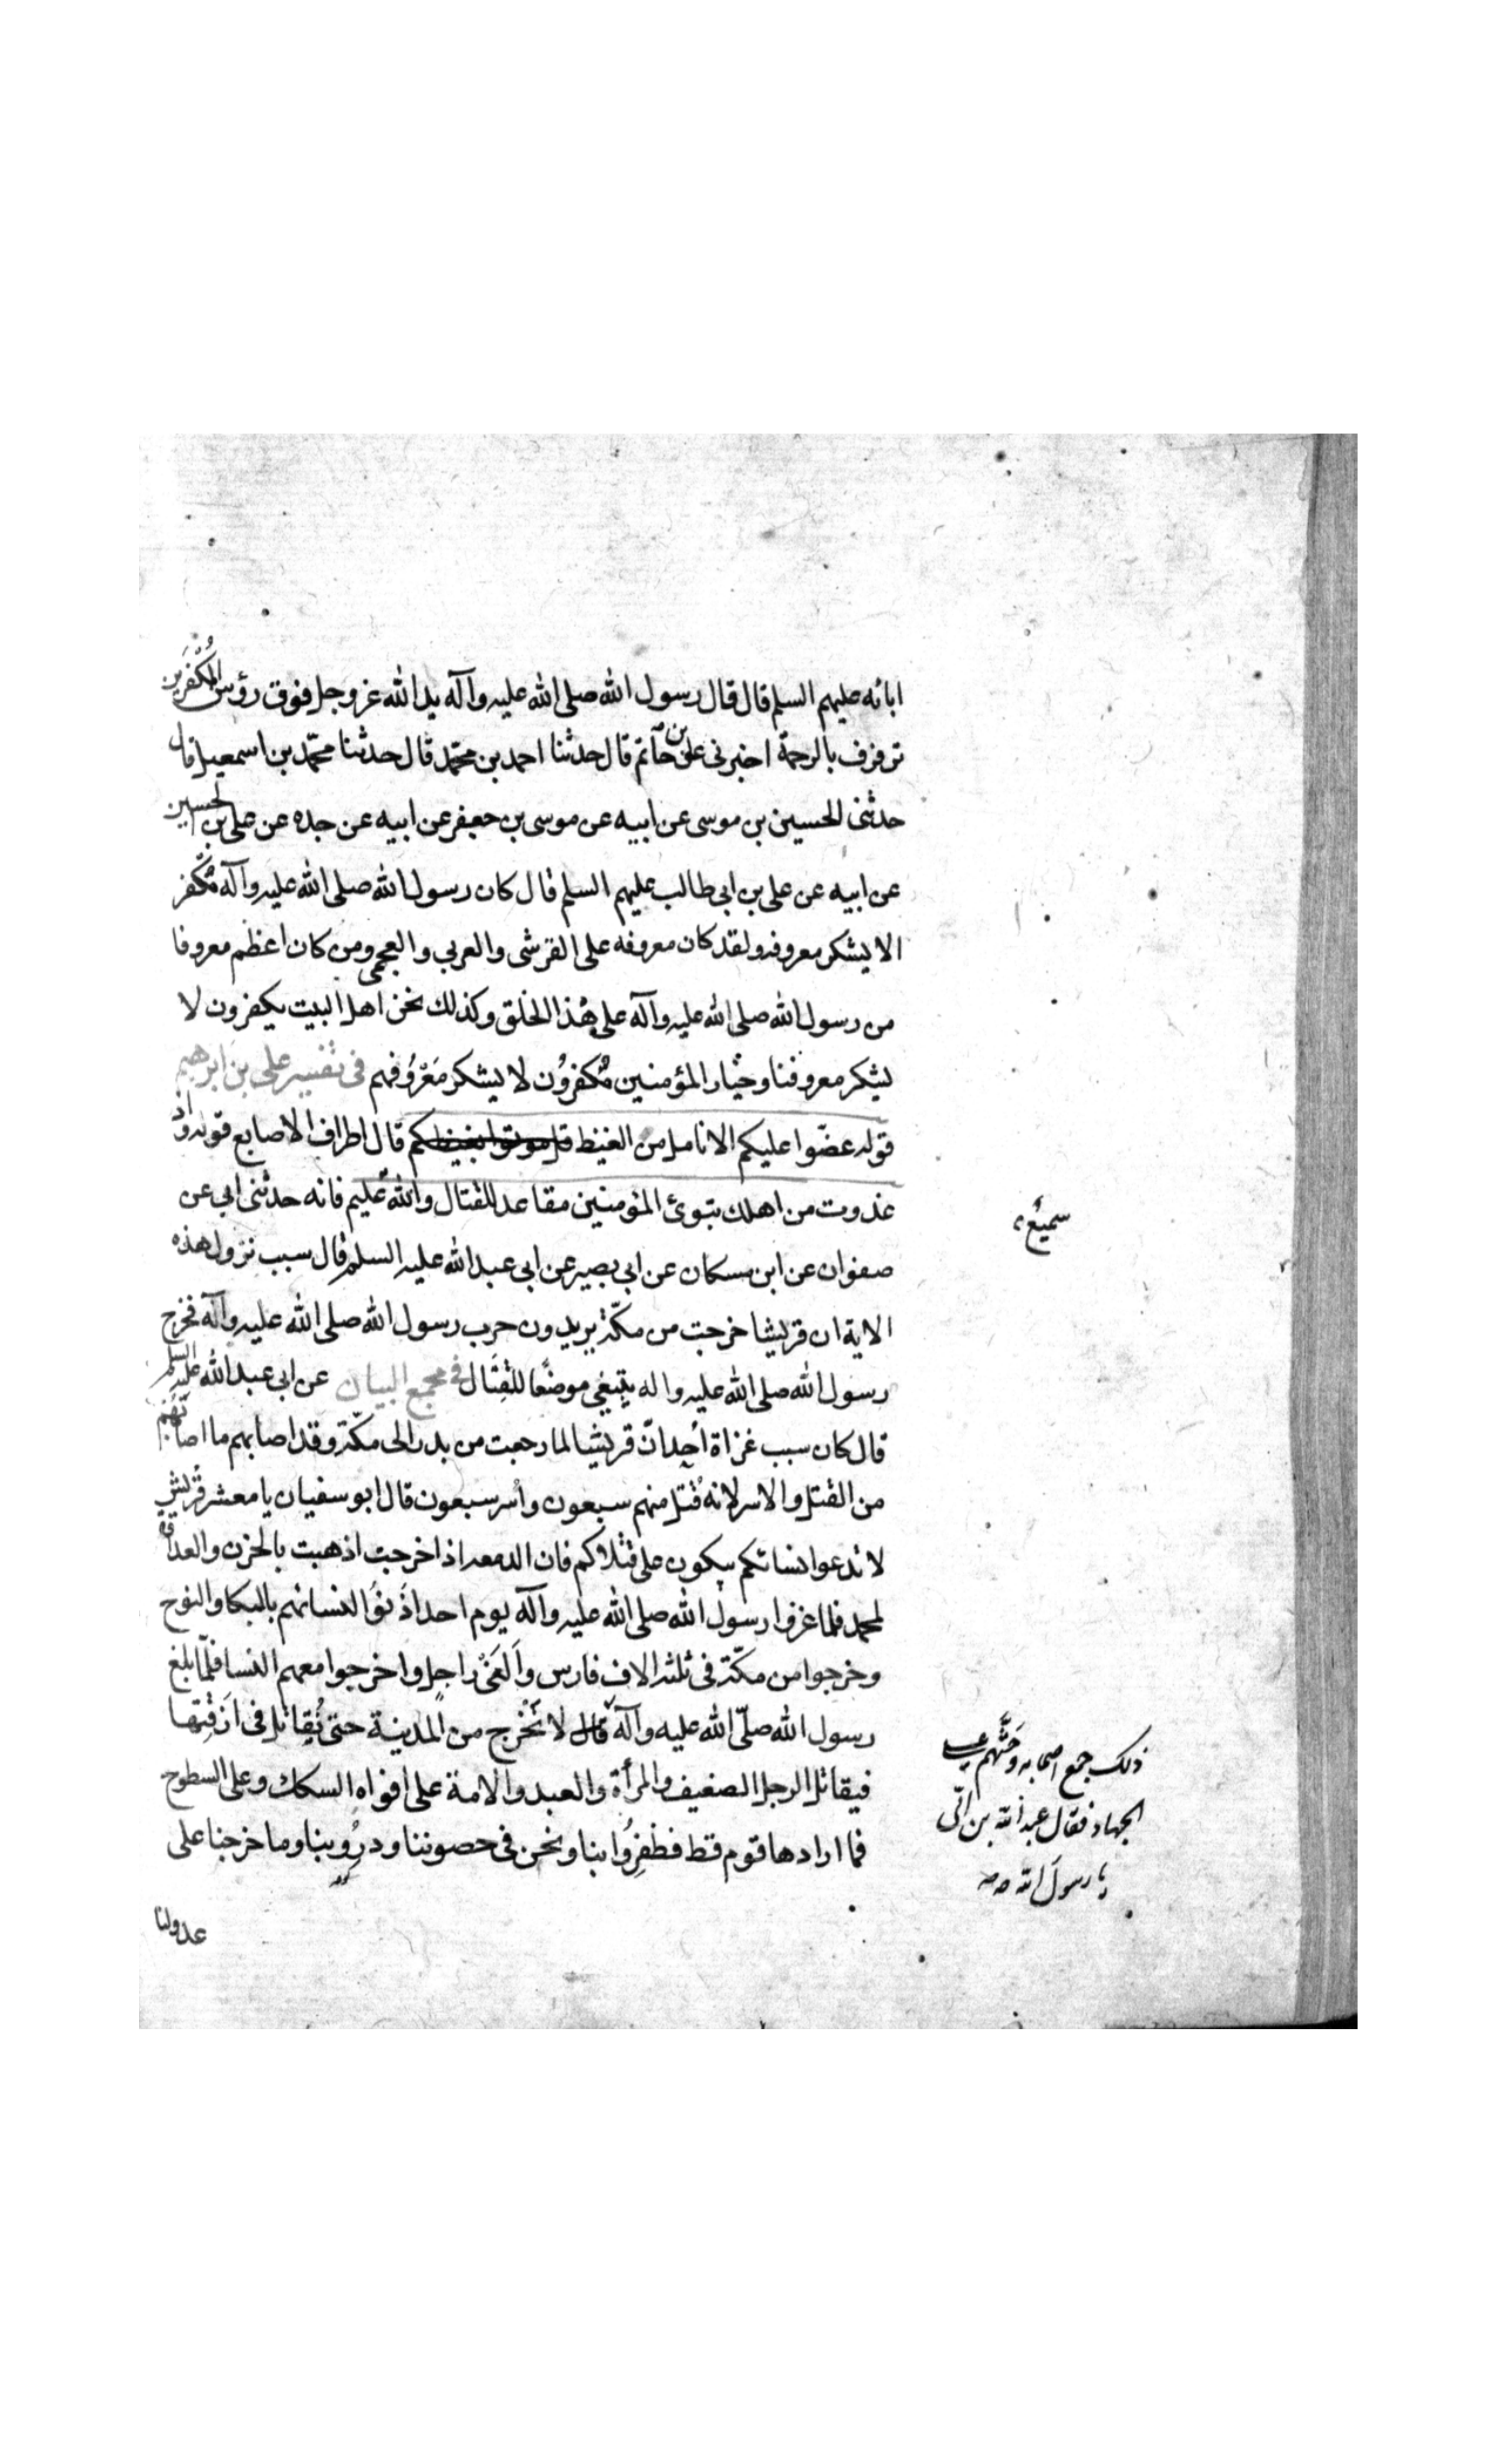 ابائه عليهم السلم قال قال رسول الله صلى الله عليه وآله يد الله عز وجل فوق رؤس المُكَفَّرين
ترفرف بالرحمة اخبرنى على بن حاتم قال حدثنا احمد بن محمّد قال حدثنا محمّد بن اسمعيل قال
حدثنى الحسين بن موسى عن ابيه عن موسى بن جعفر عن ابيه عن جده عن على بن الحسين
عن ابيه عن على بن ابى طالب عليهم السلم قال كان رسول الله صلى الله عليه وآله مُكَفّر
الا يشكر معروفه ولقد كان معروفه على القرشى والعربى والعجمى ومن كان اعظم معروفا
من رسول الله صلى الله عليه وآله على هٰذا الخلق وكذلك نحن اهل البيت يكفرون لا
يشكر معروفنا وخيار المؤمنين مُكفرُون لا يشكر مَعْرُوُفهم فى تفسير على بن ابرهيم
قوله عضّوا عليكم الانامل من الغيظ قل موتوا بغيظكم قال اطراف الاصابع قوله واذ
غدوت من اهلك تبوئ المؤمنين مقاعد للقتال والله سميع عليم فانه حدثنى ابى عن
صفوان عن ابن مسكان عن ابى بصير عن ابى عبد الله عليه السلم قال سبب نزول هذه
الاية ان قريشا خرجت من مكّة يريدون حرب رسول الله صلى الله عليه وآله فخرج
رسول الله صلى الله عليه واله يبتغى موضعًا للقِتَال فى مجمع البيان عن ابى عبد الله عليه السلم
قال كان سبب غزاة اُحد انّ قريشا لما رجعت من بدر الى مكّة وقد اصابهم ما اصابهم
من القتل والاسر لانه قُتل منهم سبعون واُسر سبعون قال ابو سفيان يا معشر قُريش
لا تدعوا نسائكم يبكون على قتلاكم فان الدمعه اذا خرجت اذهبت بالحزن والعداوة
لمحمد فلما غزوا رسول الله صلى الله عليه وآله يوم احد اذَنوُا لنسائهم بالبكا والنوح
وخرجوا من مكّة فى ثلثه الاف فارس واَلفَىْ راجل واخرجوا معهم النسا فلمّا بلغ
رسول الله صلّى الله عليه وآله قال لا تَخْرج من المدينة حتى نُقِاتل فى اَزقِتها
فيقاتل الرجل الضعيف والمرأة والعبد والامة على افواه السكك وعلى السطوح
فما ارادها قوم قط فظفِرُوا بنا ونحن فى حصوننا ودرُوِبنا وما خرجنا على
عدو لنا
سميع
ذلك جمع اصحابه وحَثَّهم على
الجهاد فقال عبد الله بن ابّى
يا رسول الله صه